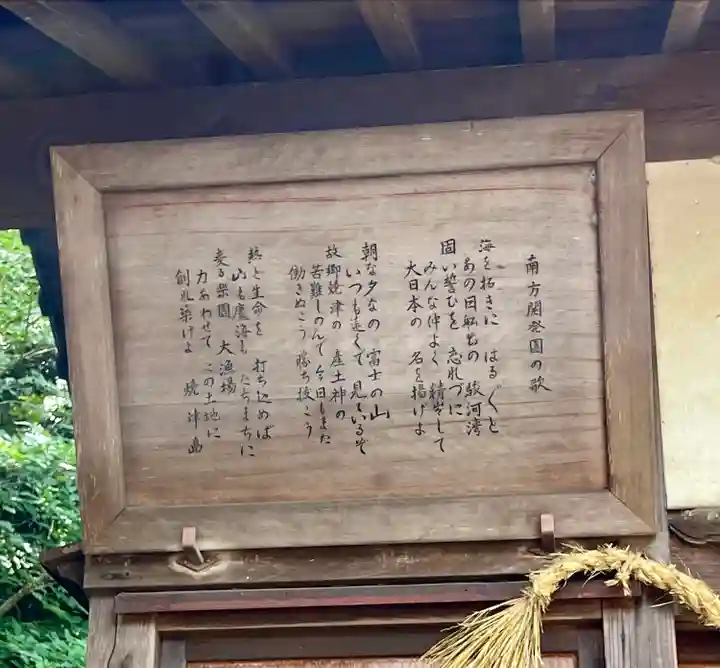 南方開発團の歌
海を拓きに はるばると
あの日船出の 駿河湾
固い誓ひを 忘れづに
みんな仲よく 精出して
大日本の 名を揚げよ
朝な夕なの 富士の山
いつも近くで 見ているぞ
故郷焼津の 産土神の
苦難しのんで 今日もまた
働きぬこう 勝ち抜こう
熱と生命を 打ち込めば
山も 海も たちまちに
変る楽園 大漁場
力あわせて この土地に
創れ築けよ 焼津島